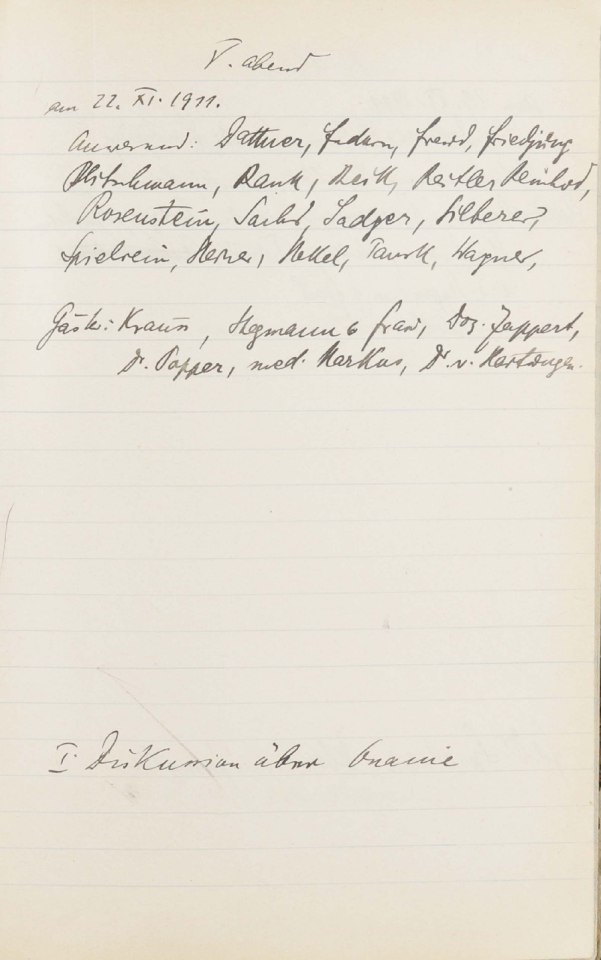 V. abend
am 22. XI. 1911.
Anwesend: Dattner, Federn, Freud, Friedjung
Hitschmann, Rank, Reik, Reitler Reinhold,
Rosenstein, Sachs, Sadger, Silberer,
Spielrein, Steiner, Stekel, Tausk, Wagner,
Gäste: Krauss, Stegmann & Frau, Doz. Zappert,
Dr. Popper, med. Markus, Dr. v. Hartungen.
I. Diskussion über Onanie